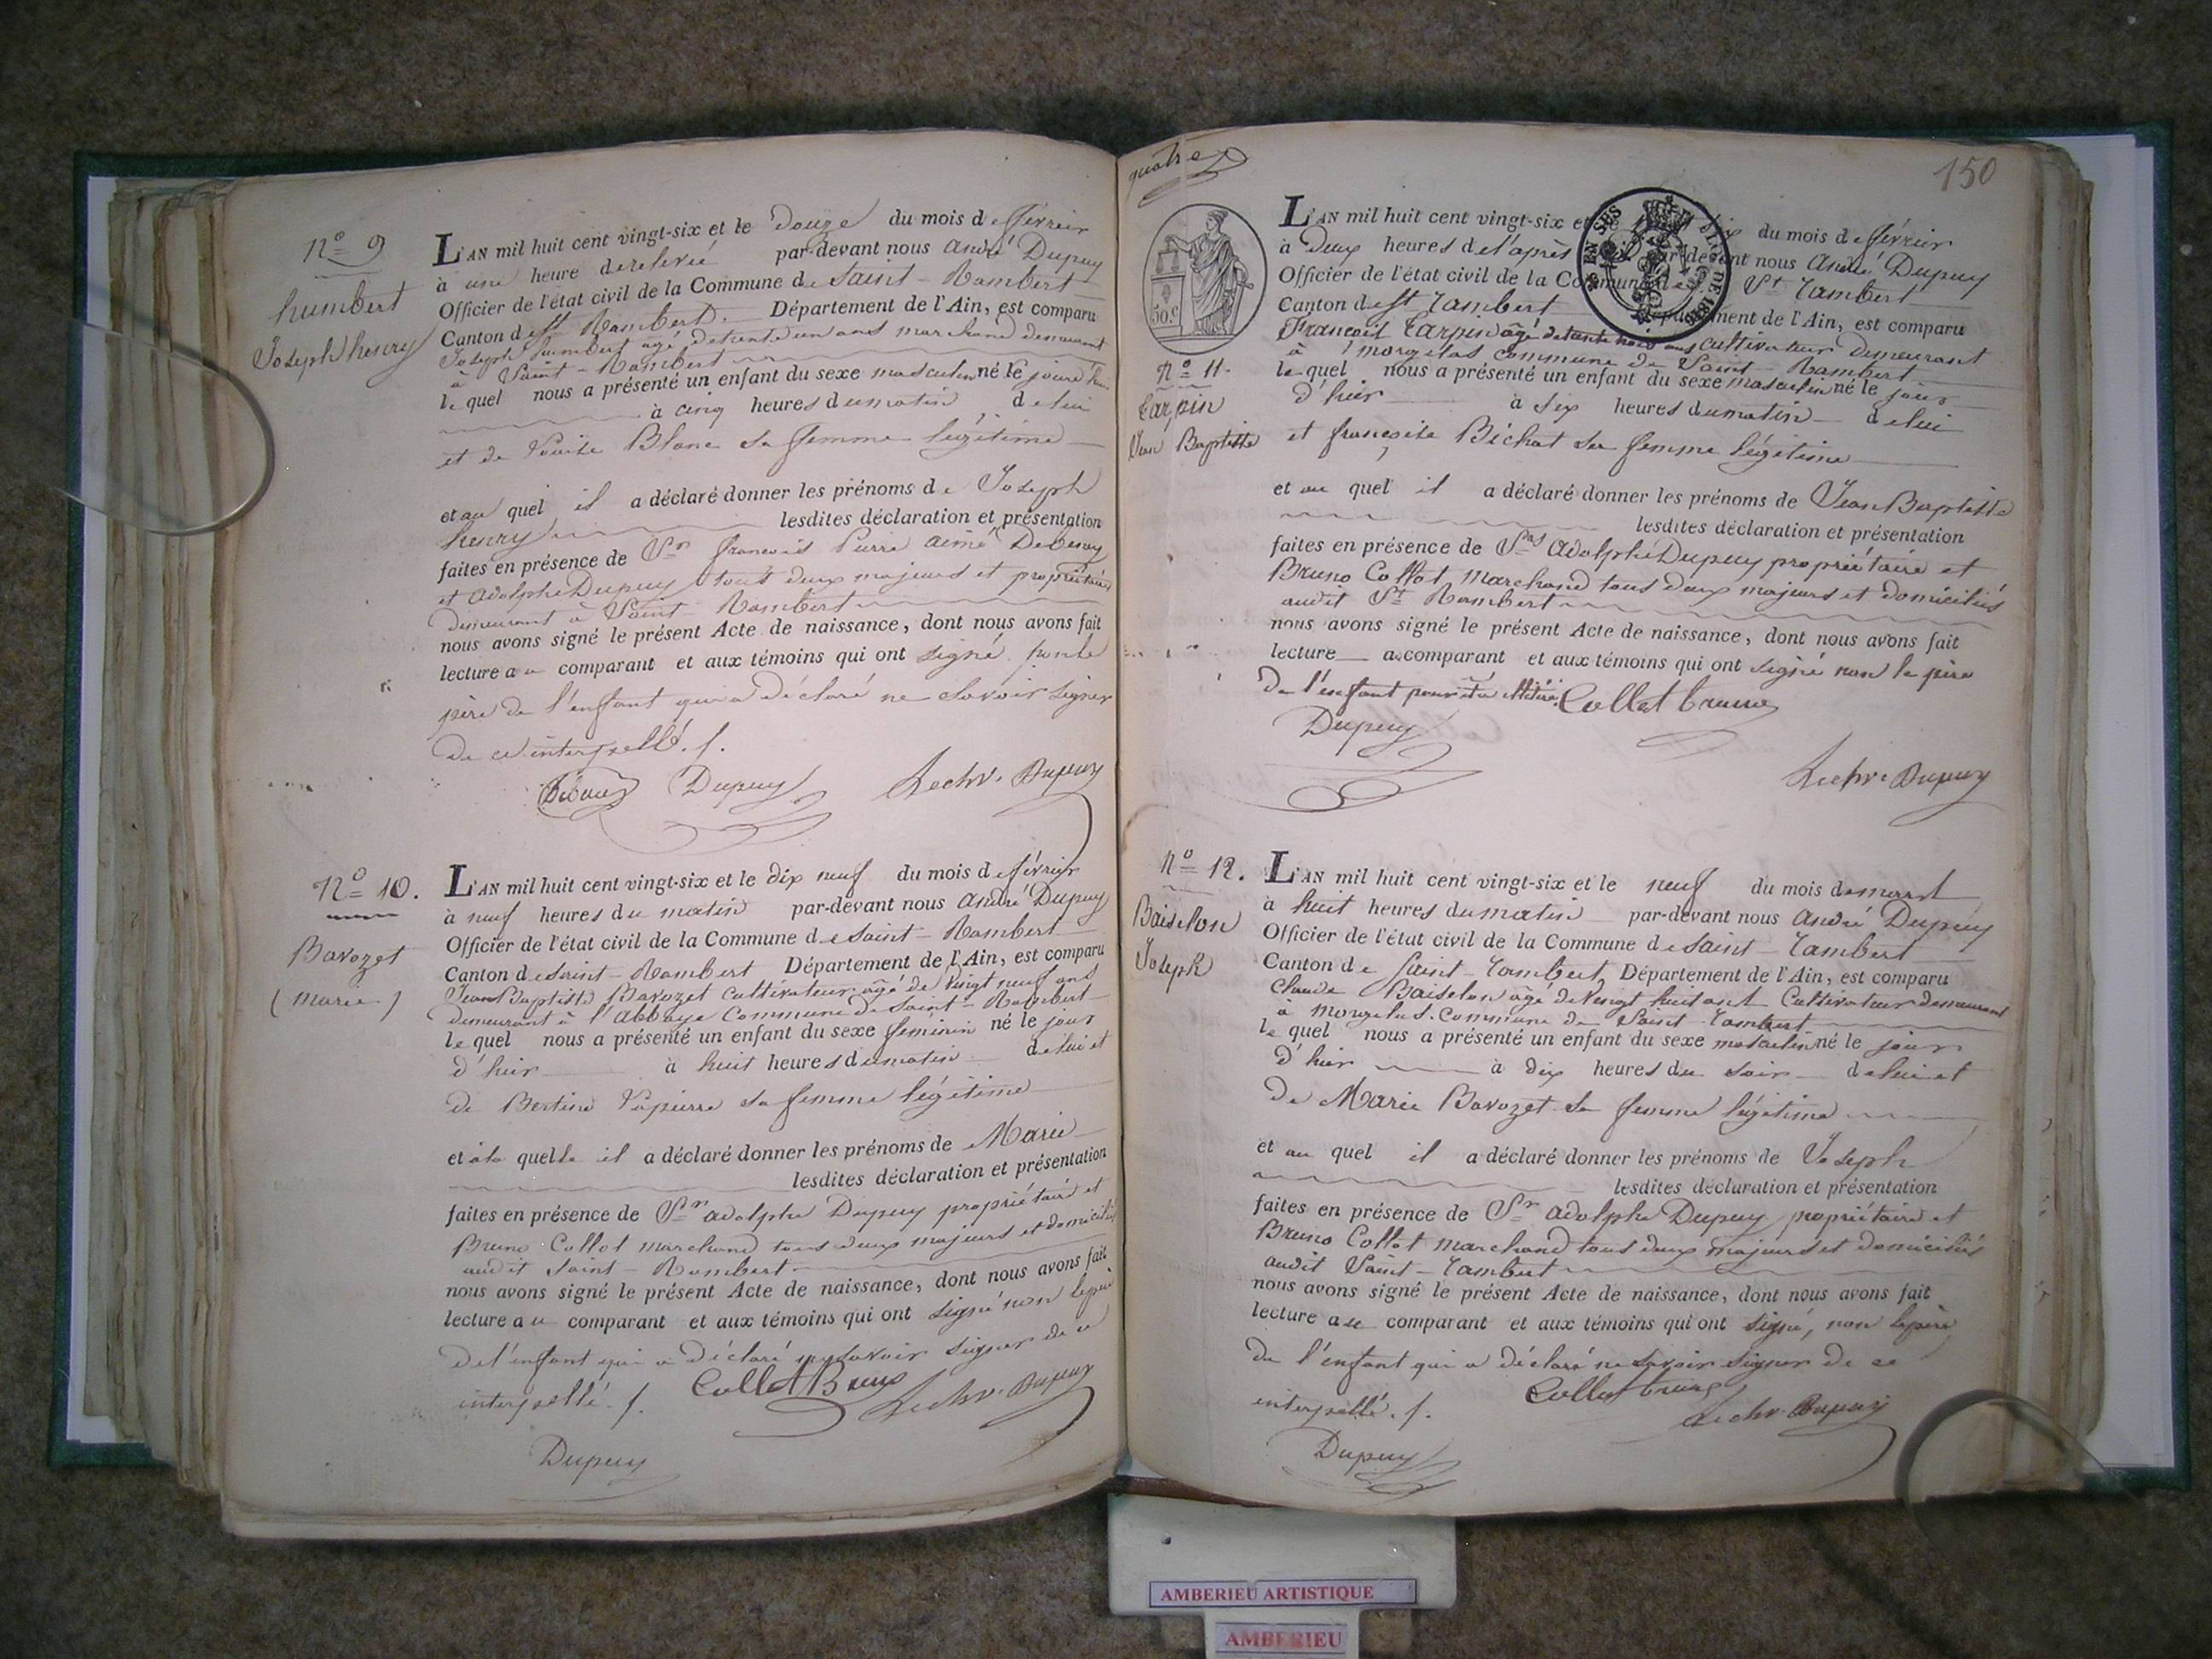 N.o 9
humbert
Joseph henry
L'AN mil huit cent vingt-six et le Douze du mois de février
à une heure de relevée par-devant nous André Dupuy
Officier de l'état civil de la Commune de Saint-Rambert
Canton de St Rambert. Département de l'Ain, est comparu
Joseph humbert âgé de trente un ans marchand demeurant
à Saint-Rambert
lequel nous a présenté un enfant du sexe masculin né le jourd'hui
à cinq heures du matin, de lui
et de Louise Blanc sa femme légitime
et au quel il a déclaré donner les prénoms de Joseph
henry lesdites déclaration et présentation
faites en présence de Srs françois Pierre aimé
et adolphe Dupuy tous deux majeurs et propriétaires
demeurant à Saint Rambert
nous avons signé le présent Acte de naissance, dont nous avons fait
lecture au comparant et aux témoins qui ont signé
père de l'enfant qui a déclaré ne savoir signer
de ce interpellé.
Dupuy Dupuy
N.o 10.
Bavozet
(marie)
L'AN mil huit cent vingt-six et le dix neuf du mois de février
à neuf heures du matin par-devant nous André Dupuy
Officier de l'état civil de la Commune de Saint-Rambert
Canton de Saint-Rambert Département de l'Ain, est comparu
Jean Baptiste Bavozet cultivateur âgé de vingt neuf ans
demeurant à l'abbaye Commune de Saint-Rambert
lequel nous a présenté un enfant du sexe féminin né le jour
d'hier à huit heures du matin de lui et
de Bertine Lapierre sa femme légitime
et à la quelle il a déclaré donner les prénoms de Marie
lesdites déclaration et présentation
faites en présence de Srs adolphe Dupuy propriétaire et
Bruno Collot marchand tous deux majeurs et domiciliés
audit Saint-Rambert
nous avons signé le présent Acte de naissance, dont nous avons fait
lecture au comparant et aux témoins qui ont signé non le père
de l'enfant qui a déclaré ne savoir signer de ce
interpellé.
Collot Bruno Dupuy
Dupuy
quatre
150
50.c
N.o 11.
Carpin
Jean Baptiste
L'AN mil huit cent vingt-six et le du mois de février
à Deux heures de l'après par-devant nous André Dupuy
Officier de l'état civil de la Commune de St Rambert
Canton de St Rambert Département de l'Ain, est comparu
François Carpin âgé de trente ans cultivateur demeurant
à morgelas commune de Saint-Rambert
lequel nous a présenté un enfant du sexe masculin né le jour
d'hier à six heures du matin de lui
et françoise Béchat sa femme légitime
et au quel il a déclaré donner les prénoms de Jean Baptiste
lesdites déclaration et présentation
faites en présence de Srs Adolphe Dupuy propriétaire et
Bruno Collot marchand tous deux majeurs et domiciliés
audit St Rambert
nous avons signé le présent Acte de naissance, dont nous avons fait
lecture au comparant et aux témoins qui ont signé non le père
de l'enfant pour être illitéré. Collot bruno
Dupuy
Dupuy
N.o 12.
Baiselon
Joseph
L'AN mil huit cent vingt-six et le neuf du mois de mars
à huit heures du matin par-devant nous André Dupuy
Officier de l'état civil de la Commune de Saint-Rambert
Canton de Saint-Rambert, Département de l'Ain, est comparu
Claude Baiselon âgé de vingt huit ans Cultivateur demeurant
à morgelas. commune de Saint-Rambert
lequel nous a présenté un enfant du sexe masculin né le jour
d'hier à dix heures du soir de lui et
de Marie Bavozet sa femme légitime
et au quel il a déclaré donner les prénoms de Joseph
lesdites déclaration et présentation
faites en présence de Srs adolphe Dupuy propriétaire et
Bruno Collot marchand tous deux majeurs et domiciliés
audit Saint-Rambert
nous avons signé le présent Acte de naissance, dont nous avons fait
lecture au comparant et aux témoins qui ont signé, non le père
de l'enfant qui a déclaré ne savoir signer de ce
interpellé. Collot bruno
Dupuy
Dupuy
AMBERIEU ARTISTIQUE
AMBERIEU